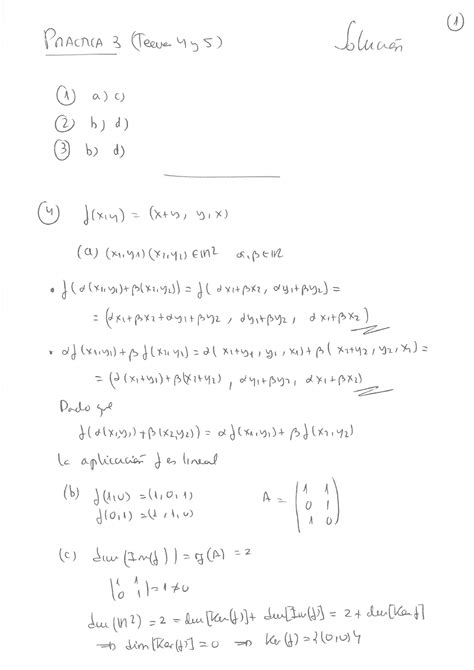 ①
PRACTICA 3 (Temas 4 y 5)
Solución
① a) c)
② b) d)
③ b) d)
④ f(x,y) = (x+y, y, x)
(a) (x₁,y₁) (x₂,y₂) ∈ ℝ² α, β ∈ ℝ
• f(α(x₁,y₁)+β(x₂,y₂)) = f(αx₁+βx₂, αy₁+βy₂) =
= (αx₁+βx₂+αy₁+βy₂, αy₁+βy₂, αx₁+βx₂)
• αf(x₁,y₁)+βf(x₂,y₂) = α(x₁+y₁, y₁, x₁)+β(x₂+y₂, y₂, x₂) =
= (α(x₁+y₁)+β(x₂+y₂), αy₁+βy₂, αx₁+βx₂)
Dado que
f(α(x₁,y₁)+β(x₂,y₂)) = αf(x₁,y₁)+βf(x₂,y₂)
la aplicación f es lineal
(b) f(1,0) = (1,0,1)
f(0,1) = (1,1,0)
A = (1 1
0 1
1 0)
(c) dim(Im(f)) = rg(A) = 2
|1 1
0 1| = 1 ≠ 0
dim(ℝ²) = 2 = dim[Ker(f)] + dim[Im(f)] = 2 + dim[Ker f]
⇒ dim[Ker(f)] = 0 ⇒ Ker(f) = {(0,0)}